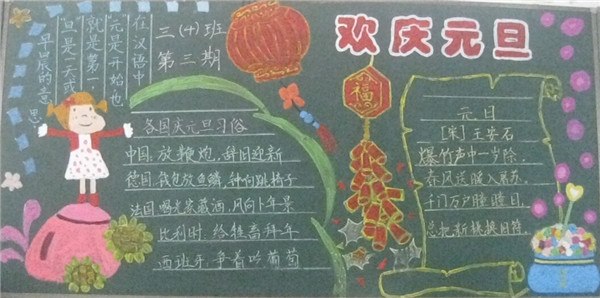 在汉语中
"元"是开始也
就是第一
"旦"是一天或
早晨的意思
三(十)班
第三期
欢庆元旦
福
各国庆元旦习俗
中国:放鞭炮,辞旧迎新
德国:钱包放鱼鳞,钟响跳椅子
法国:喝光家藏酒,风向卜年景
比利时:给牲畜拜年
西班牙:争着吃葡萄
元日
[宋]王安石
爆竹声中一岁除,
春风送暖入屠苏.
千门万户曈曈日,
总把新桃换旧符.